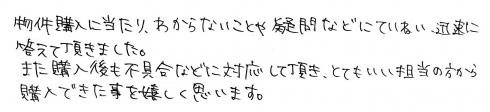 物件購入に当たり、わからないことや疑問などにていねい、迅速に
答えて頂きました。
また購入後も不具合などに対応して頂き、とてもいい担当の方から
購入できた事を嬉しく思います。